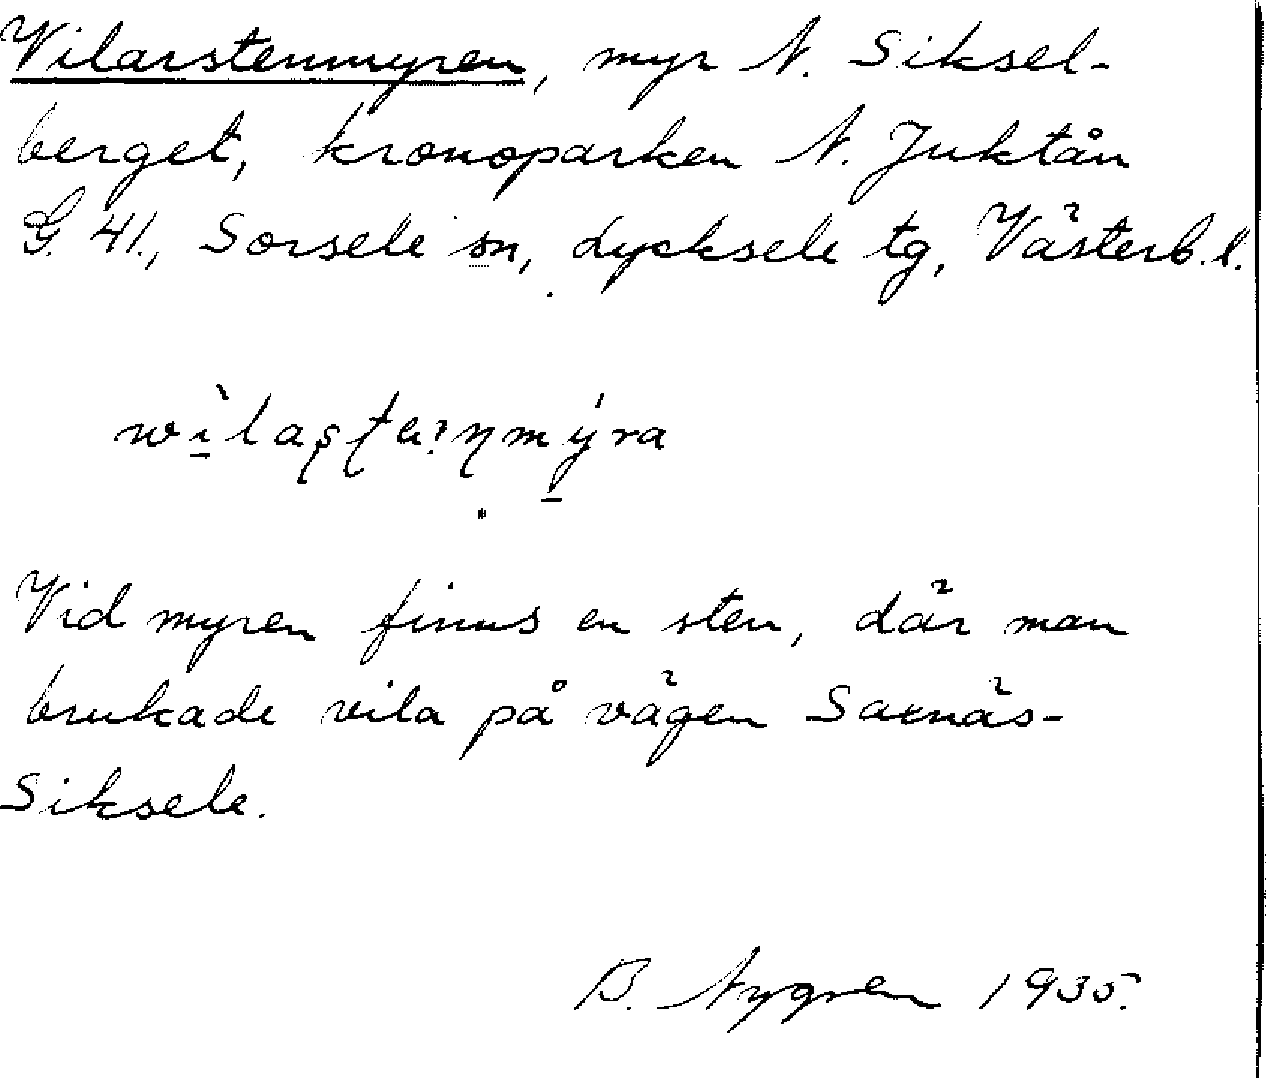 Vilarstenmyren, myr N. Siksel-
berget, kronoparken N. Juktån
G. 41., Sorsele sn, Lycksele tg, Västerb. l.
Vid myren finns en sten, där man
brukade vila på vägen Saxnäs-
Siksele.
B. Nygren 1935.